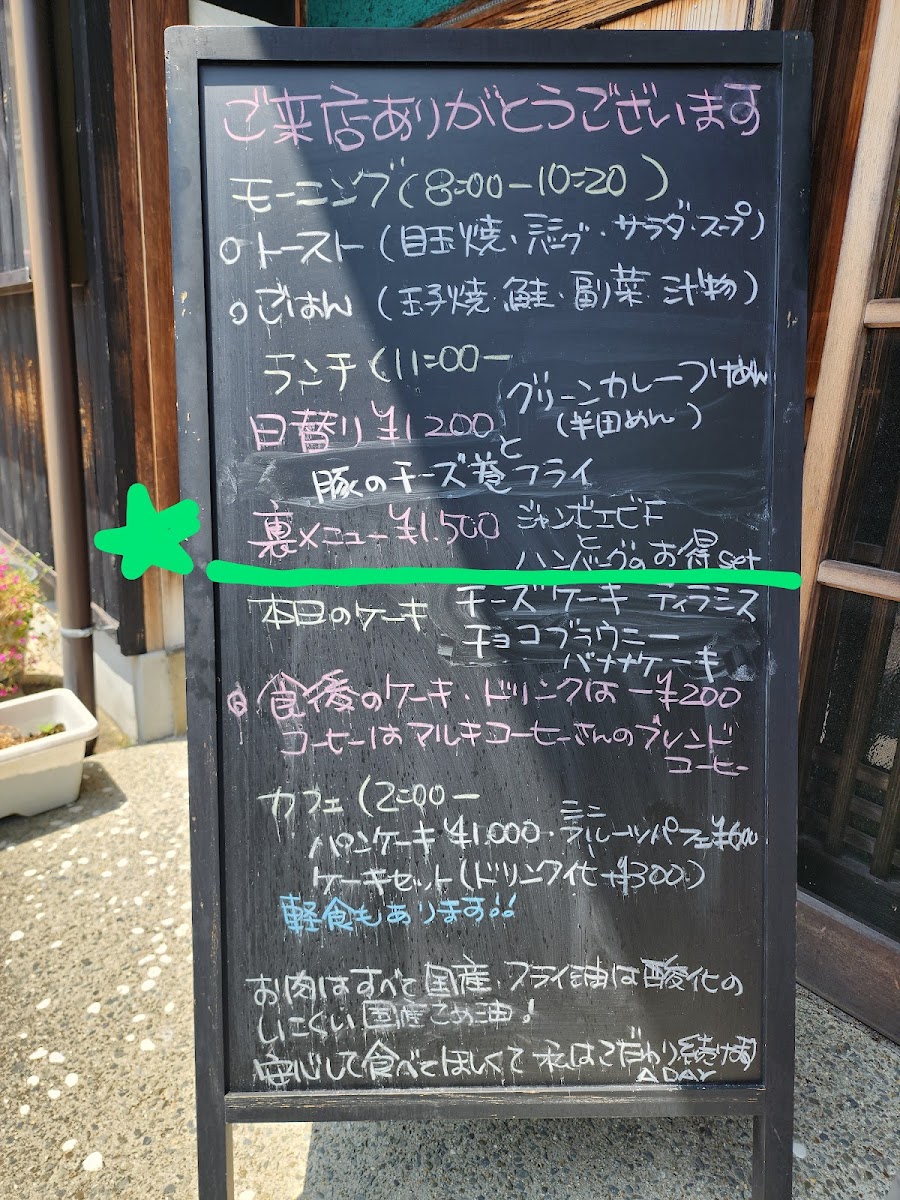 ご来店ありがとうございます
モーニング(8:00-10:20)
○トースト(目玉焼・ソーセージ・サラダ・スープ)
○ごはん(玉子焼・鮭・副菜・汁物)
ランチ(11:00-
日替り¥1200 グリーンカレーつけめん
(半田めん)
と
豚のチーズ巻フライ
裏メニュー¥1.500 ジャンボエビF
と
ハンバーグのお得set
本日のケーキ チーズケーキ ティラミス
チョコブラウニー
バナナケーキ
食後のケーキ・ドリンクは-¥200
コーヒーはマルキコーヒーさんのブレンド
コーヒー
カフェ(2:00-
パンケーキ¥1.000・ミニフルーツパフェ¥600
ケーキセット(ドリンク代+¥300)
軽食もあります!!
お肉はすべて国産・フライ油は酸化の
しにくい国産こめ油!
安心して食べてほしくて私はこだわり続ける
A DAY